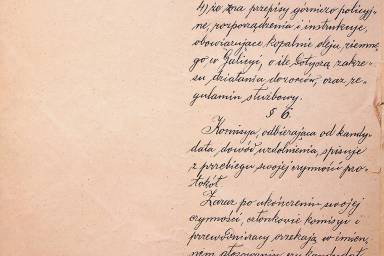 4) że zna przepisy górniczo policyj-
ne, rozporządzenia i instrukcje,
obowiązujące kopalnie oleju ziemne-
go w Galicyi, o ile dotyczą zakre-
su działania dozorców, oraz re-
gulamin służbowy.
§ 6.
Komisya, odbierająca od kandy-
data, dowód uzdolnienia, spisuje
z przebiegu swojej czynności pro-
tokół.
Zaraz po ukończeniu swojej
czynności, członkowie komisyi i
przewodniczący orzekają w imien-
nem głosowaniu czy kandydat